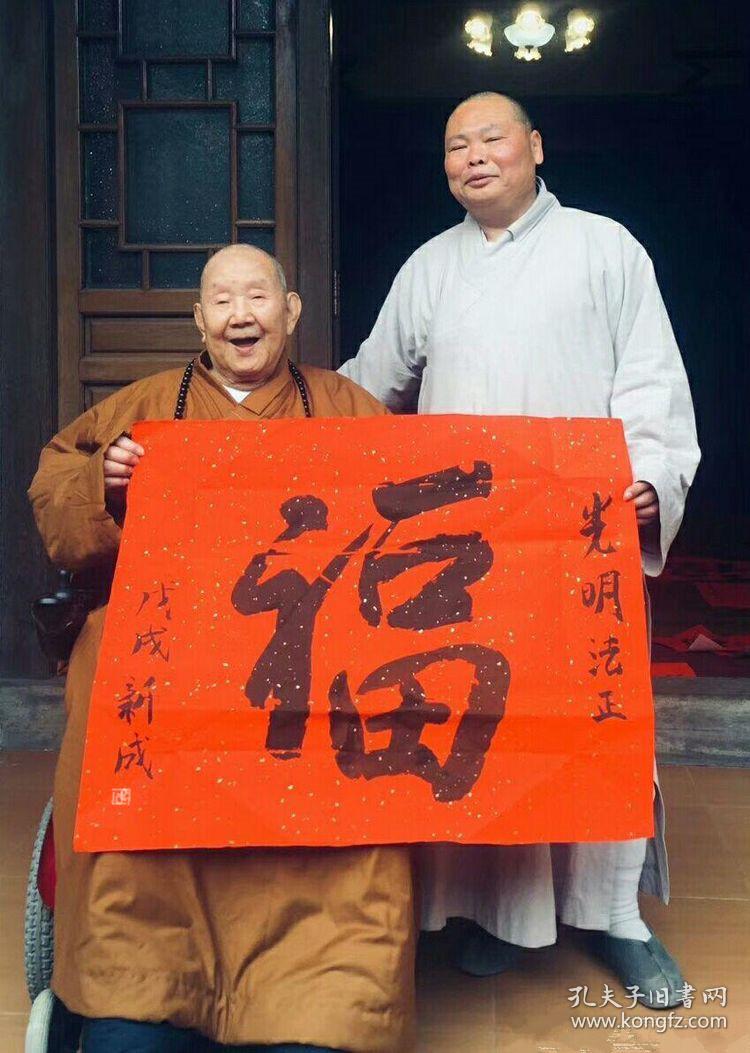 光明法正
福
戊戌新成
孔夫子旧书网
www.kongfz.com